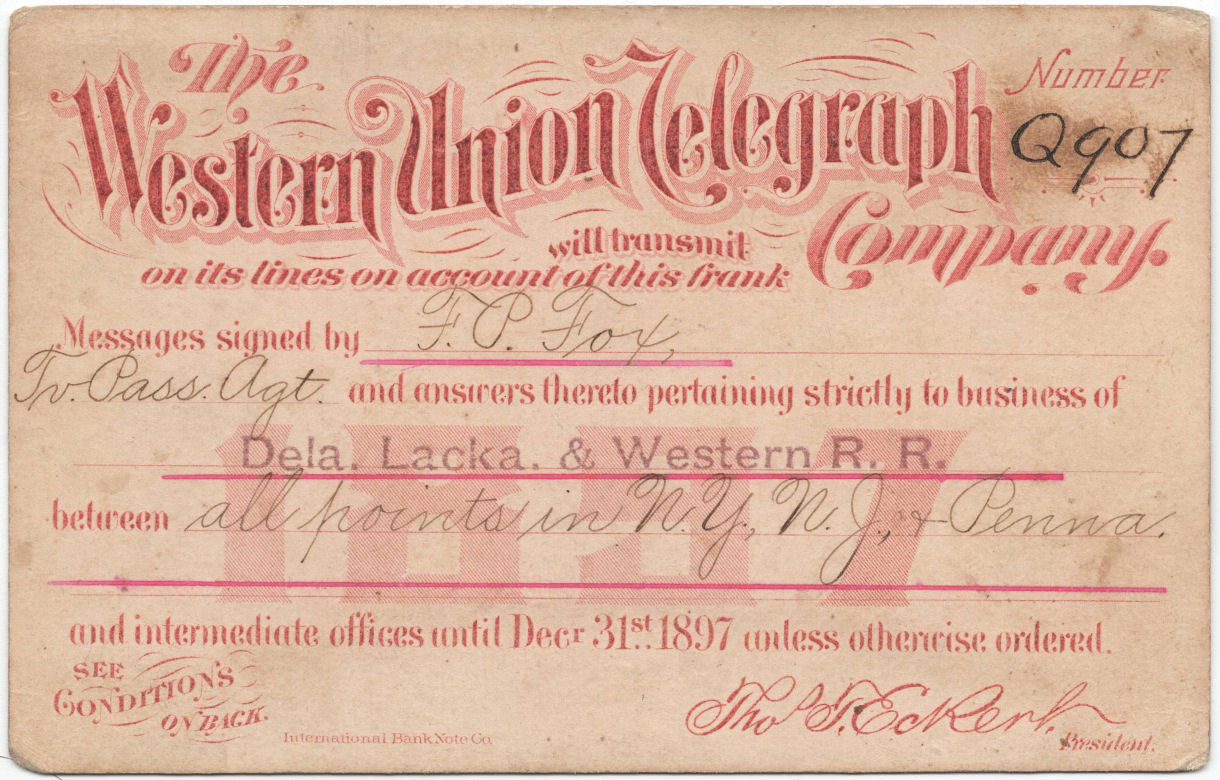 The
Western Union Telegraph
Company
Number
Q907
will transmit
on its lines on account of this frank
Messages signed by F. P. Fox,
Tv. Pass. Agt. and answers thereto pertaining strictly to business of
1897
Dela. Lacka. & Western R. R.
between all points in N.Y., N.J., & Penna.
and intermediate offices until Decr 31st. 1897 unless otherwise ordered.
SEE
CONDITIONS
ON BACK.
International Bank Note Co.
Thos. T. Eckert.
President.